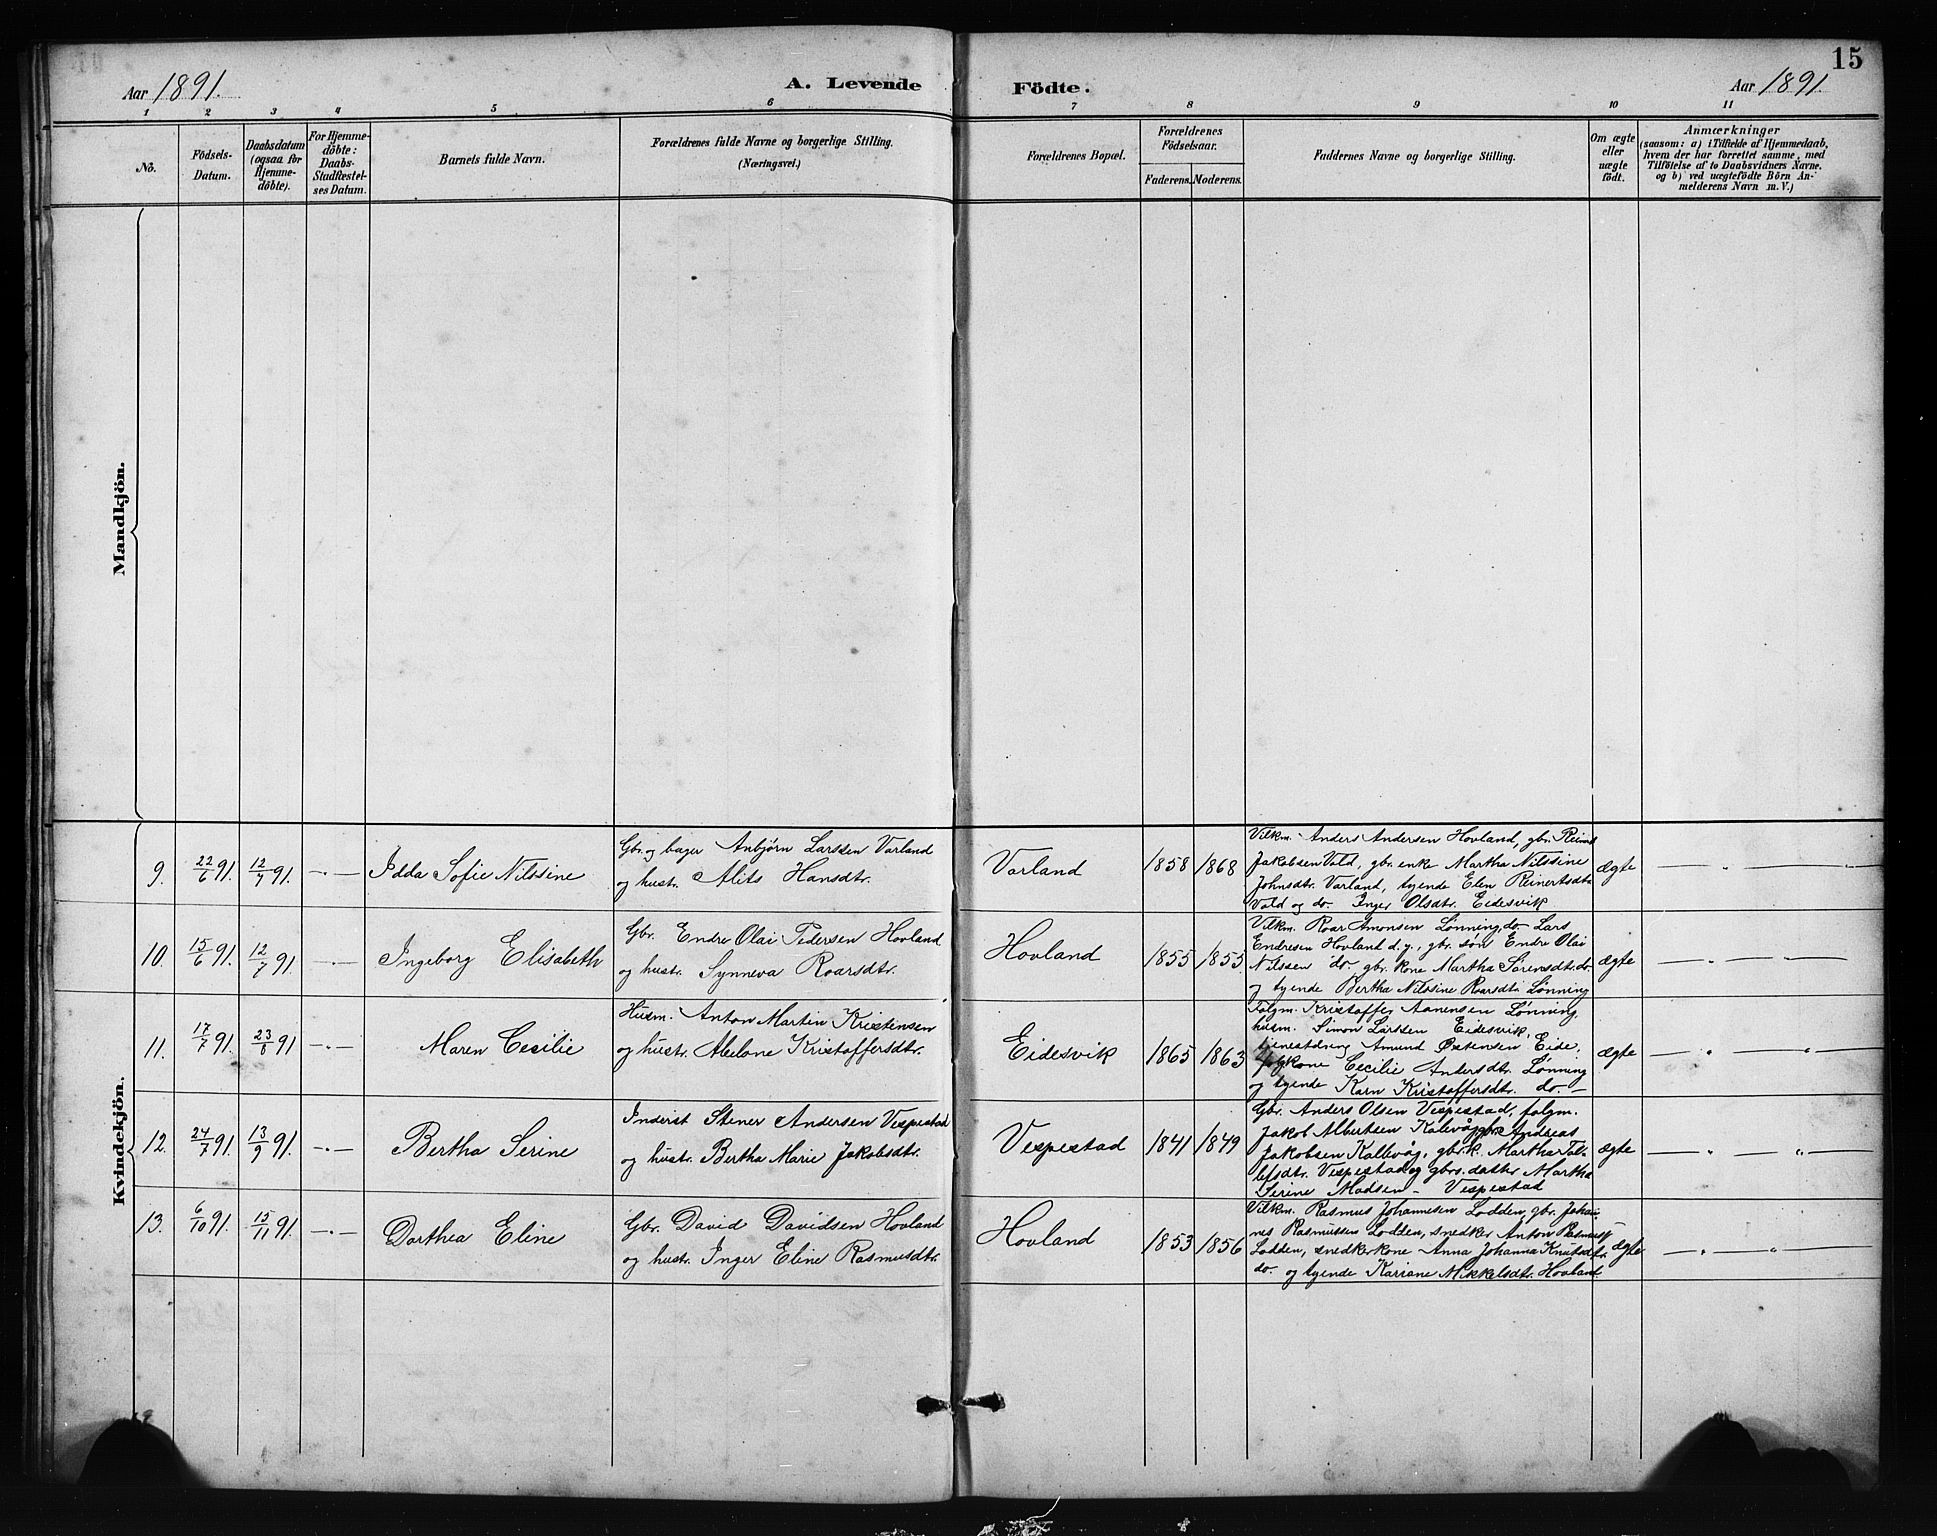 15
Aar 1891.
A. Levende Födte.
Aar 1891.
1 2 3 4 5 6 7 8 9 10 11
No.
Födsels-
Datum.
Daabsdatum
(ogsaa for
Hjemme-
döbte).
For Hjemme-
döbte:
Daabs-
Stadfæstel-
ses Datum.
Barnets fulde Navn.
Forældrenes fulde Navne og borgerlige Stilling.
(Næringsvei.)
Forældrenes Bopæl.
Forældrenes
Födselsaar.
Faderens. Moderens.
Faddernes Navne og borgerlige Stilling.
Om ægte
eller
uægte
födt.
Anmærkninger
(saasom: a) i Tilfælde af Hjemmedaab,
hvem der har forrettet samme, med
Tilföielse af to Daabsvidners Navne,
og b) ved uægtefödte Börn An-
melderens Navn m. V.)
Mandkjön.
Kvindekjön.
9. 22/6 91. 12/7 91. -„-
Idda Sofie Nilssine
Gbr. og bager Anbjørn Larssen Varland
og hustr. Alits Hansdtr.
Varland
1858 1868
Vilkm. Anders Andersen Hovland, gbr. Reinert
Jakobsen Vold, gbr. enke Martha Nilssine
Johnsdtr. Varland, tyende Elen Reinertsdtr.
Vold og do. Inger Olsdtr. Eidesvik
ægte
10. 15/6 91. 12/7 91. -„-
Ingeborg Elisabeth
Gbr. Endre Olai Pedersen Hovland
og hustr. Synneva Roarsdtr.
Hovland
1855 1855
Vilkm. Roar Amonsen Lønning, do. Lars
Endresen Hovland d.y., gbr. søn Endre Olai
Nilssen do. gbr. kone Martha Sørensdtr. do.
og tyende Bertha Nilssine Roarsdtr. Lønning
ægte
11. 17/7 91. 23/8 91 -„-
Maren Cecilie
Husm. Anton Martin Kristensen
og hustr. Abelone Kristoffersdtr.
Eidesvik
1865 1863
Følgm. Kristoffer Aanensen Lønning,
husm. Simon Larssen Eidesvik,
tjenestdreng Amund Østensen Eide,
følgkone Cecilie Andersdtr. Lønning
og tyende Karn Kristoffersdtr. do -
ægte
12. 24/7 91. 13/9 91. -„-
Bertha Serine
Inderst Stener Andersen Vespestad
og hustr. Bertha Marie Jakobsdtr.
Vespestad
1841 1849
Gbr. Anders Olsen Vespestad, følgm.
Jakob Albertsen Kalevåg, gbr. Andreas
Jakobsen Kallevåg, gbr.k. Martha Tol-
lefsdtr. Vespestad og gbr. datter Martha
Serine Madsen - Vespestad
ægte
13. 6/10 91. 15/11 91. -„-
Dorthea Eline
Gbr. David Davidsen Hovland
og hustr. Inger Eline Rasmusdtr.
Hovland
1853 1856
Vilkm. Rasmus Johannesen Lodden, gbr. Johan-
nes Rasmussen Lodden, snedker Anton Rasmuss.
Lodden, snedkerkone Anna Johanna Knutsdtr.
do. og tyende Kariane Mikkelsdtr. Hovland.
ægte